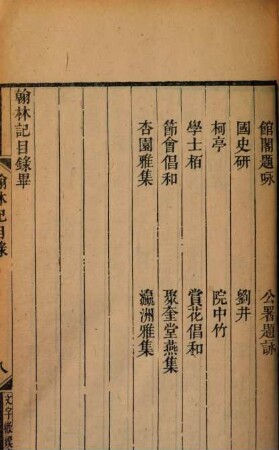 館閣題咏 公署題詠
國史研 劉井
柯亭 院中竹
學士栢 賞花倡和
節會倡和 聚奎堂燕集
杏園雅集 瀛洲雅集
翰林記目錄畢
翰林記目錄 八